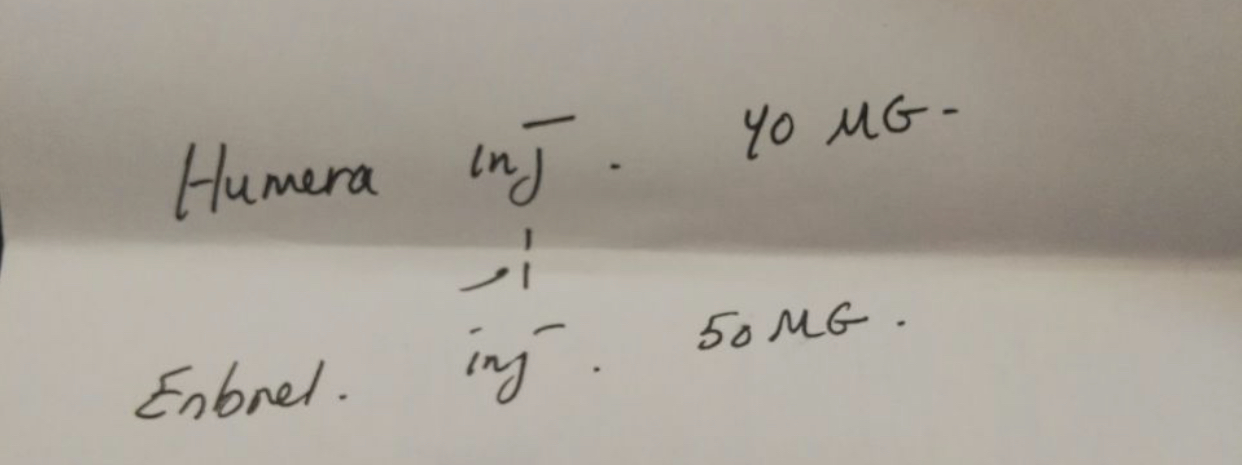 Humera inj. 40 MG-
Enbrel. inj. 50 MG.